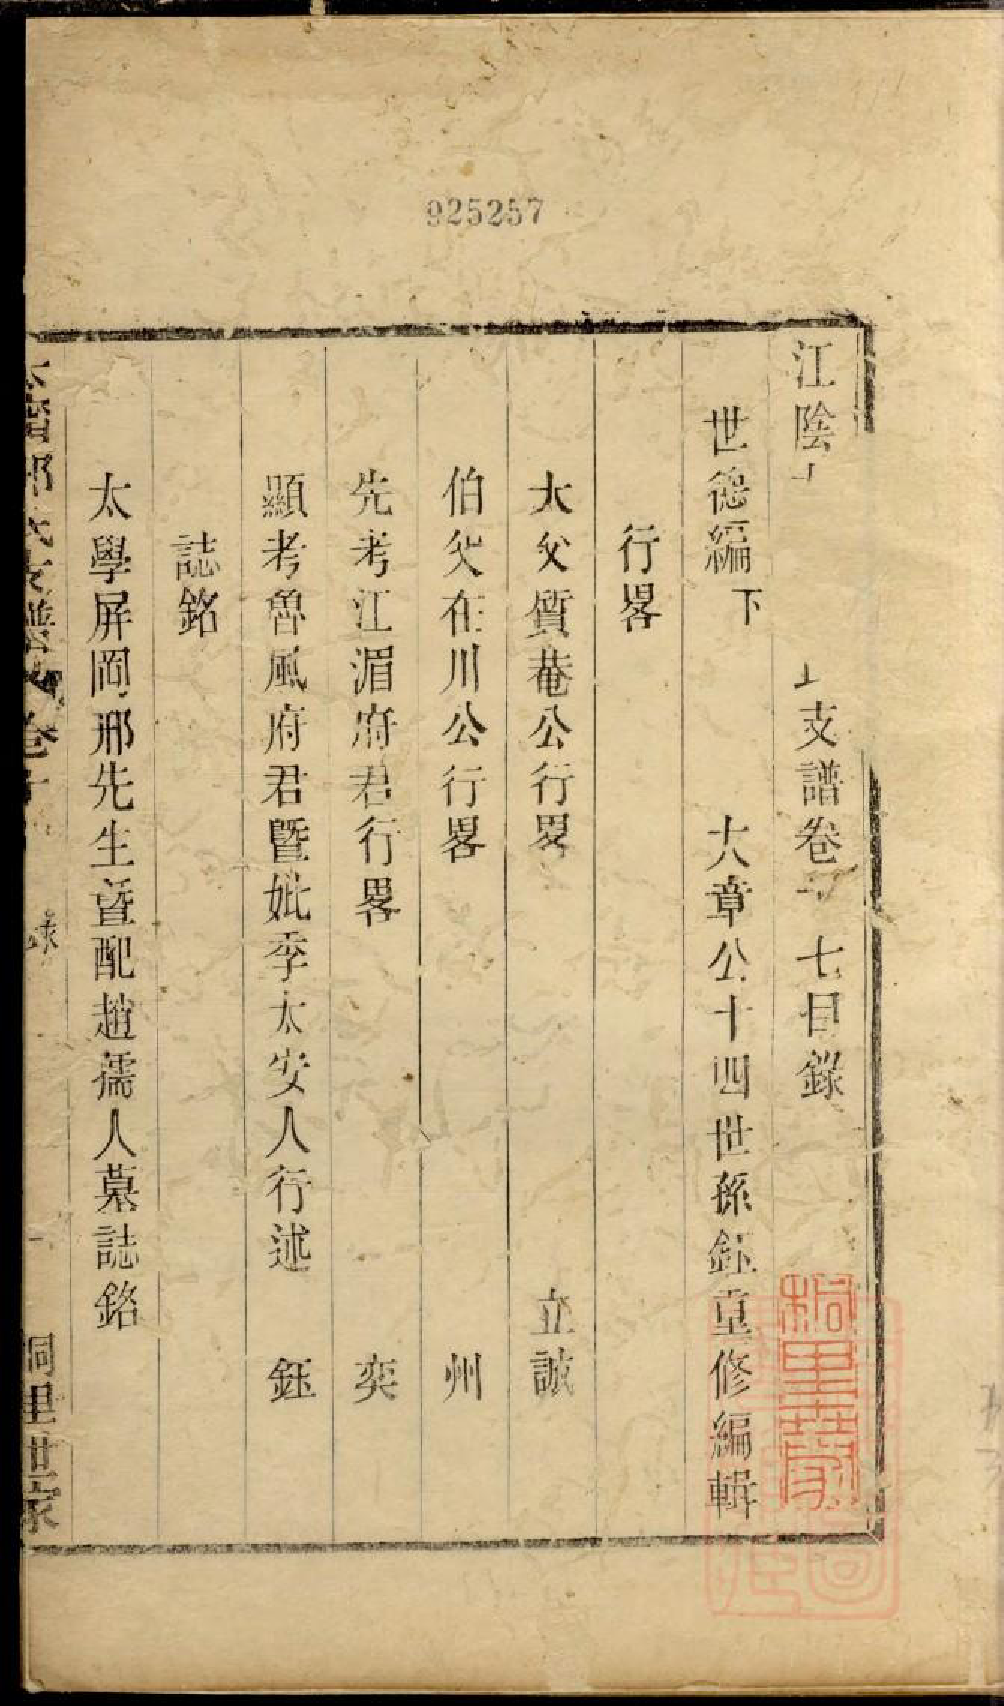 925257
江陰
支譜卷
七目錄
世德編下
大章公十四世孫鈺重修編輯
行畧
大父質菴公行畧
立誠
伯父在川公行畧
州
先考江湄府君行畧
奕
顯考魯風府君暨妣季太安人行述
鈺
誌銘
太學屏岡邢先生暨配趙孺人墓誌銘
桐里世家
桐里